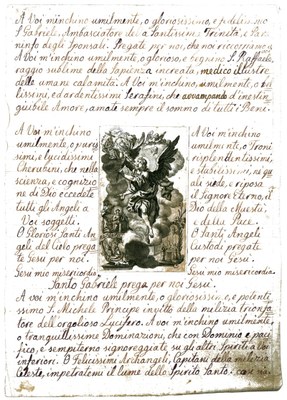 A Voi m'inchino umilmente, o gloriosissimo, e fedelissimo
S. Gabriele Ambasciatore della Santissima Trinità, e Para-
ninfo degli Sponsali. Pregate per noi, che noi ricorriamo
A Voi m'inchino umilmente, o glorioso, e benigno S. Raffaele,
raggio sublime della Sapienza increata, medico illustre
delle umane calamità. A Voi m'inchino umilmente, o
tissimi, ed ardentissimi Serafini, che avvampando d'inestin-
guibile Amore, amate sempre il sommo di tutti i Beni.
A Voi m'inchino
umilmente, o puris-
simi, e lucidissimi
Cherubini, che nella
scienza, e cognizio
ne di Dio eccedete
tutti gli Angeli a
Voi soggetti.
O Gloriosi Santi An
geli del Cielo prega
te Gesù per noi.
Gesù mio misericordia
A Voi m'inchino
umilmente, o Troni
risplendentissimi,
e stabilissimi, ne qu
ali siede, e riposa
il Signore Eterno, il
Dio della Maestà
e della Pace.
O Santi Angeli
Custodi pregate
per noi Gesù.
Gesù mio misericordia.
Santo Gabriele prega per noi Gesù.
A voi m'inchino umilmente, o gloriosissimo, e potentis
simo S. Michele Principe invitto della milizia trionfa
tore dell'orgolioso Lucifero. A voi m'inchino umilmente,
o tranquillissime Dominazioni, che con Dominio e paci
fico, e sempiterno signoreggiate su gli altri Spiriti a Voi
inferiori. O Felicissimi Archangeli, Capitani della milizia
Celeste, impetratemi il lume dello Spirito Santo.